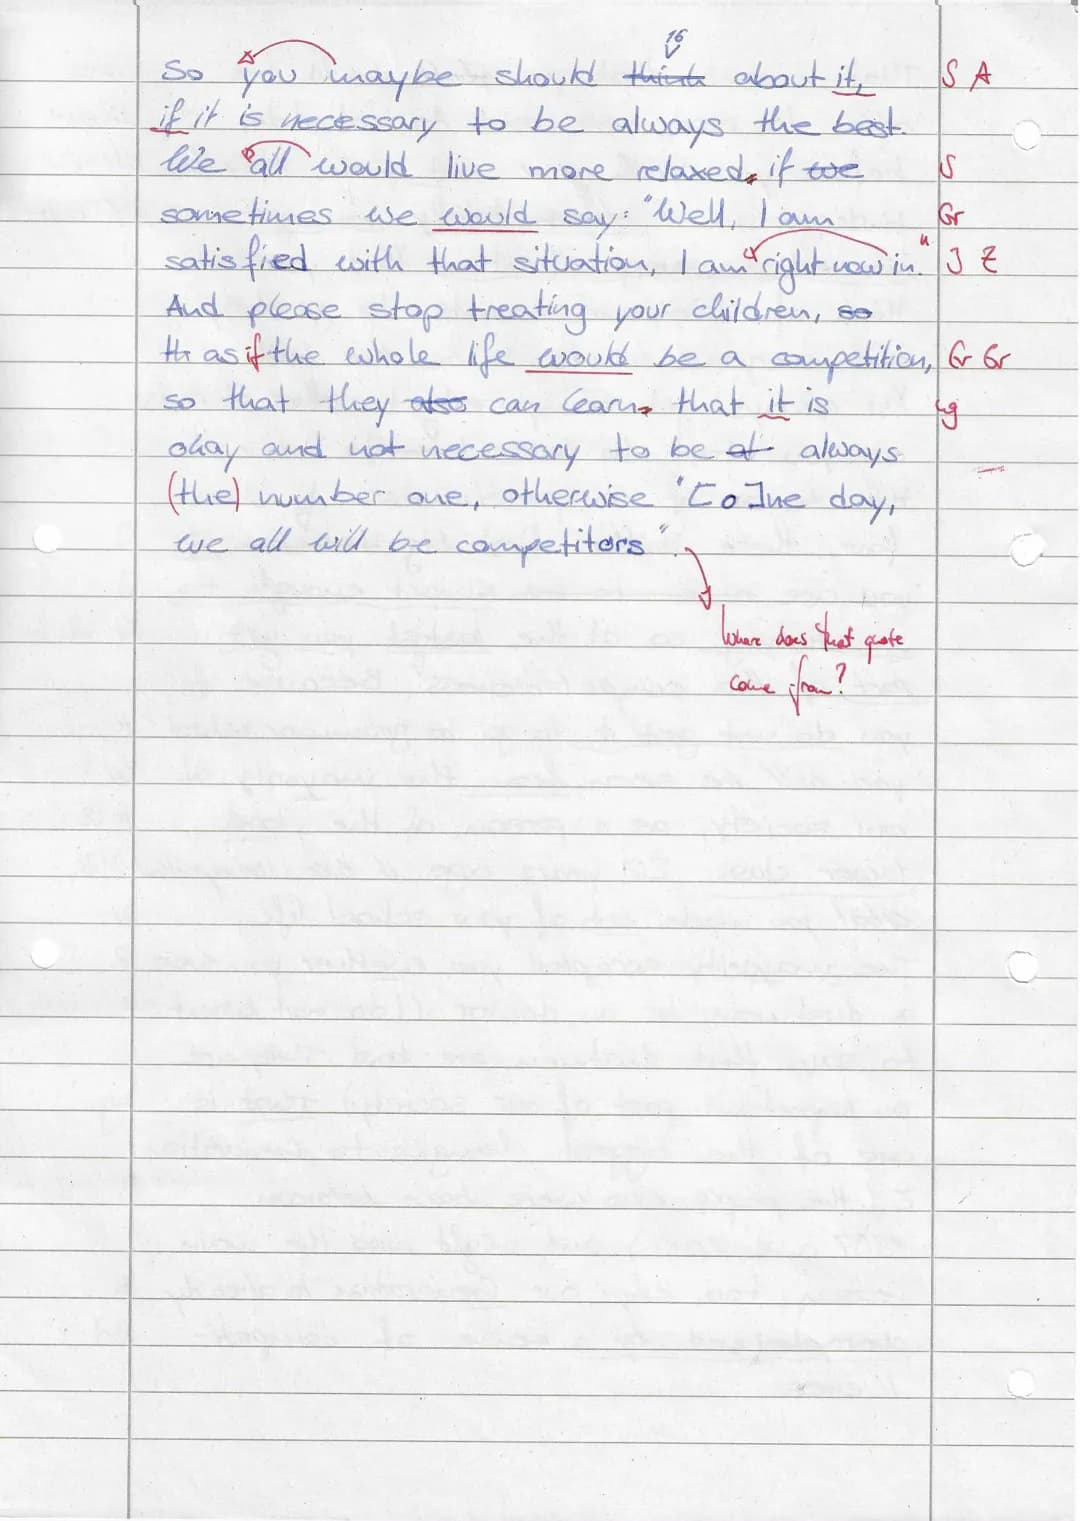 16
So you maybe should think about it, S A
if it is necessary to be always the best.
We all would live more relaxed, if we S
sometimes we would say: "Well, I am Gr
satisfied with that situation, I am right now in." J Z
And please stop treating your children, so
th as if the whole life would be a competition, Gr Gr
so that they also can learn, that it is
okay and not necessary to be at always
(the) number one, otherwise "[o]ne day,
we all will be competitors".
Where does that quote
come from?